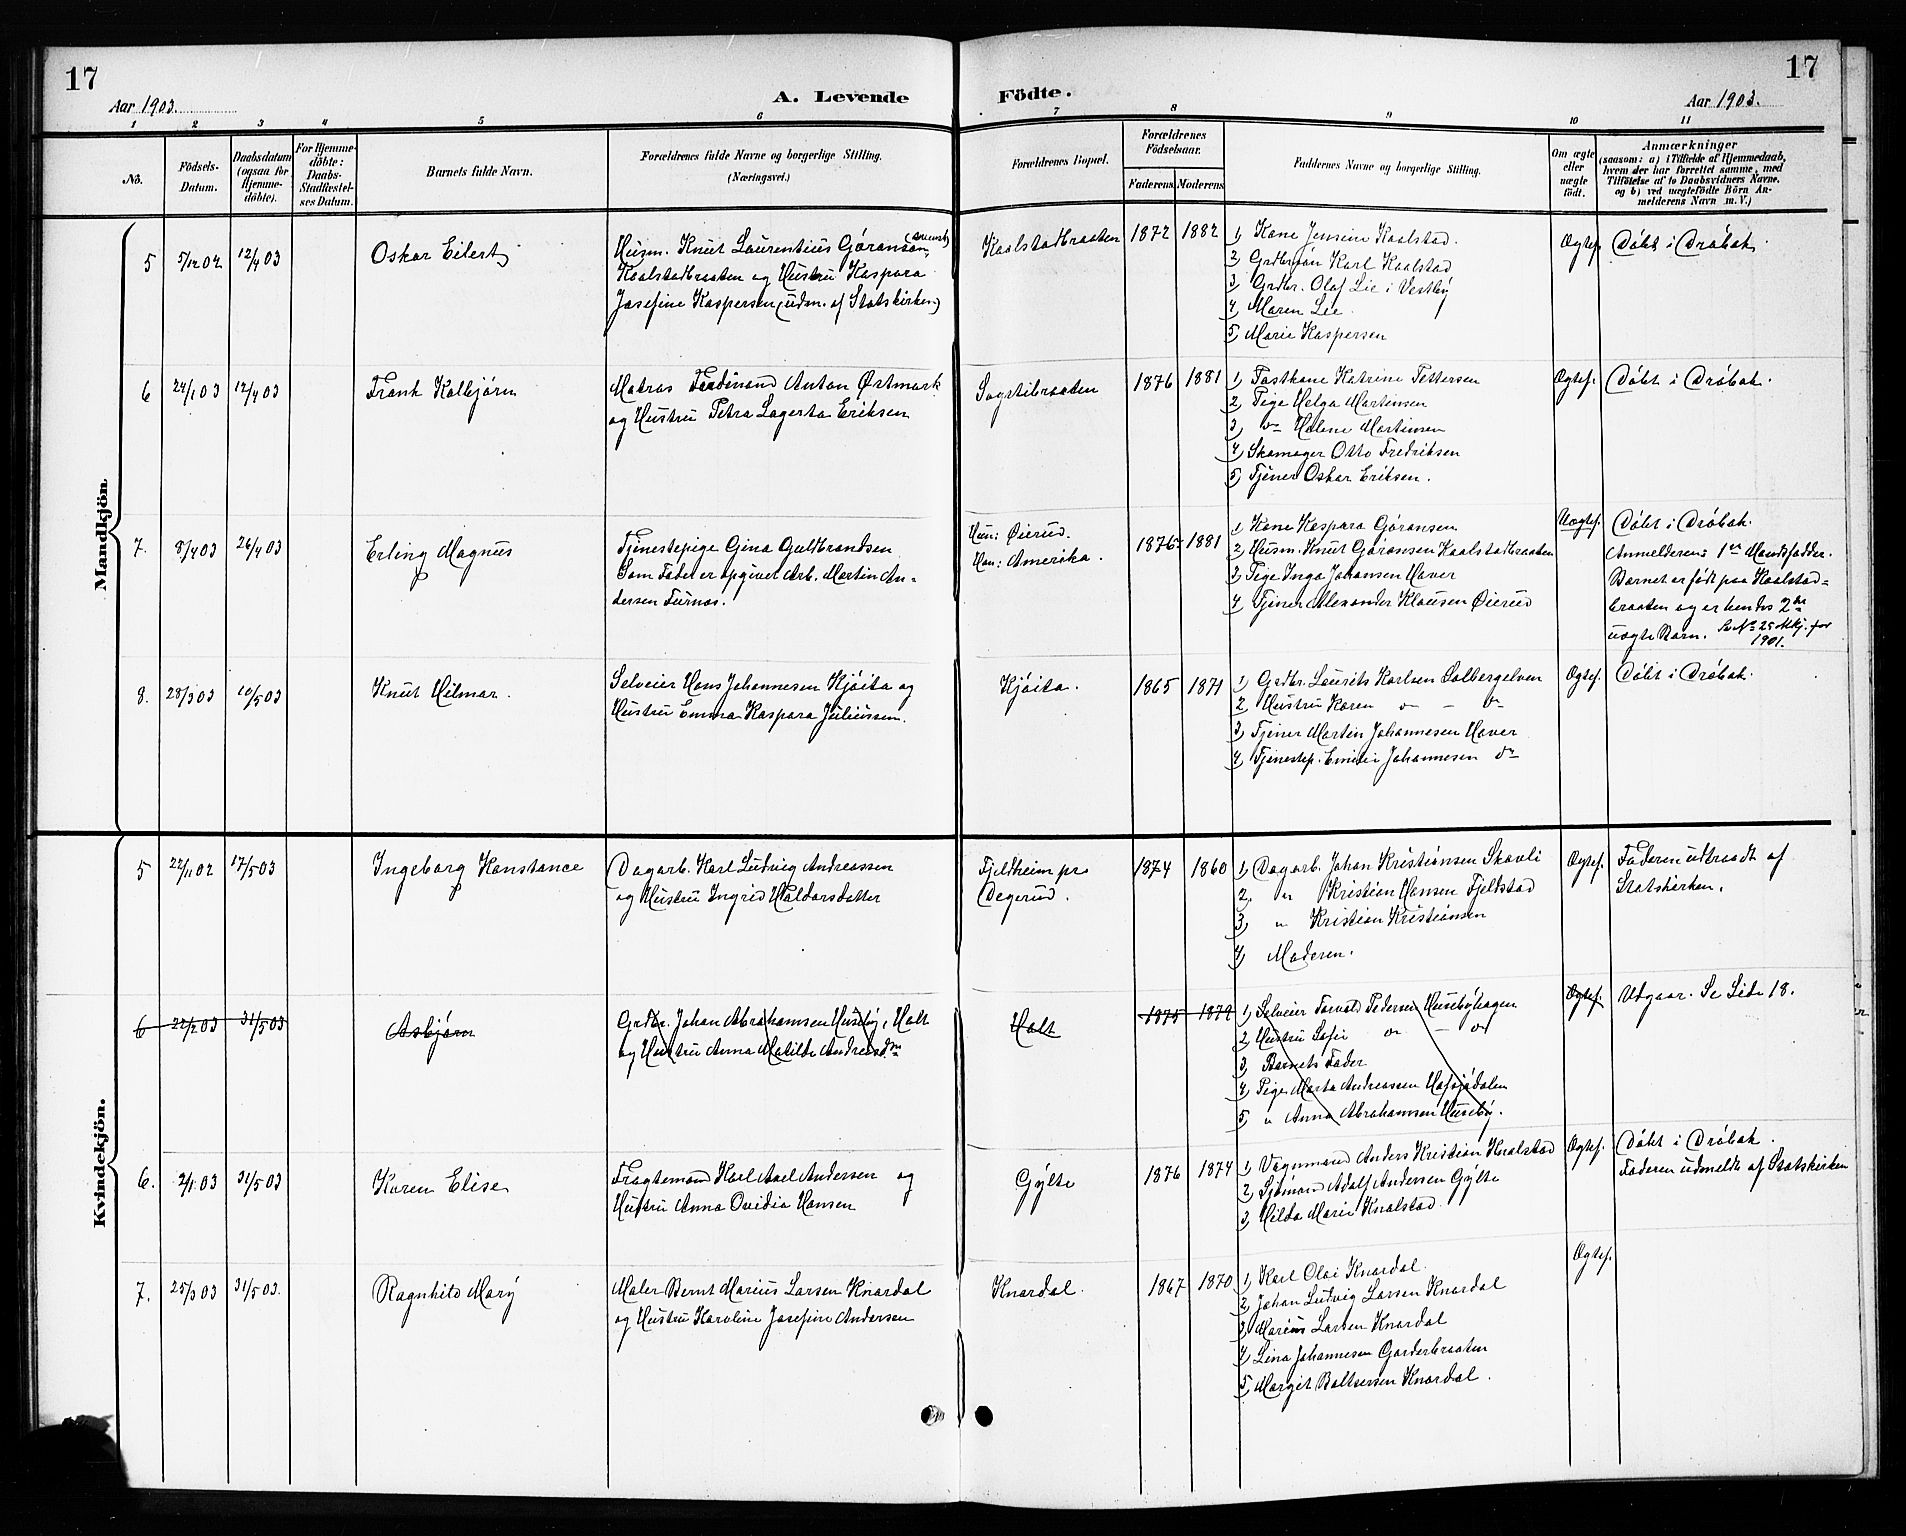 17
17
Aar 1903.
A. Levende Födte.
Aar 1903.
1 2 3 4 5 6 7 8 9 10 11
No.
Födsels-Datum.
Daabsdatum (ogsaa for Hjemmedöbte).
For Hjemmedöbte: Daabs-Stadfæstelses Datum.
Barnets fulde Navn.
Forældrenes fulde Navne og borgerlige Stilling. (Næringsvei.)
Forældrenes Bopæl.
Forældrenes Födselsaar.
Faderens
Moderens
Faddernes Navne og borgerlige Stilling.
Om ægte eller uægte födt.
Anmærkninger
(saasom: a) i Tilfælde af Hjemmedaab, hvem der har forrettet samme, med Tilföielse af to Daabsvidners Navne, og b) ved uægtefödte Börn Anmelderens Navn m. V.)
Mandkjön.
5 5/12 02 12/4 03 Oskar Eilert
Husm. Knut Laurentius Göransen (svensk)
Kaalstadbraaten og Hustru Kaspara
Josefine Kaspersen (udm. af Statskirken)
Kaalstadbraaten 1872 1882
1, Kone Jensine Kaalstad.
2, Grdbrsøn Karl Kaalstad
3, Grdbr. Olaf Lie i Vestby
4, Maren Lie
5, Marie Kaspersen
Ægtef. Döbt i Dröbak.
6 24/1 03 12/4 03 Frank Kolbjörn
Matros Ferdinand Anton Østmark
og Hustru Petra Lagerta Eriksen
Sogstibraaten 1876 1881
1, Postkone Katrine Pettersen
2, Pige Helga Martinsen
3, do Helene Martinsen
4, Skomager Otto Fredriksen
5, Tjener Oskar Eriksen.
Ægtef. Döbt i Dröbak.
7. 8/4 03 26/4 03 Erling Magnus
Tjenestepige Gina Guldbrandsen
Som Fader er opgivet Arb. Martin An-
dersen Furnæs.
Hun: Øierud.
Han: Amerika.
1876 1881
1, Kone Kaspara Göransen
2, Husm. Knut Göransen Kaalstadbraaten
3, Pige Inga Johansen Haver
4, Tjener Alexander Klausen Øierud
Uægtef. Döbt i Dröbak.
Anmelderen: 1ste Mandsfadder.
Barnet er födt paa Kaalstad=
braaten og er hendes 2det
uægte Barn. Se No 25 Mkj. for
1901.
8. 28/3 03 10/5 03 Knut Hilmar.
Selveier Hans Johannesen Kjöita og
Hustru Emma Kaspara Juliussen.
Kjöita. 1865 1871
1, Grdbr. Laurits Karlsen Solbergelven
2, Hustru Karen do - do
3, Tjener Martin Johannesen Haver
4, Tjenestep. Emilie Johannesen do
Ægtef. Döbt i Dröbak.
Kvindekjön.
5 22/11 02 17/5 03 Ingeborg Konstance
Dagarb. Karl Ludvig Andreassen
og Hustru Ingrid Haldorsdatter
Fjeldheim pr
Degerud.
1874 1860
1, Dagarb. Johan Kristiansen Skovli
2, " Kristian Hansen Fjeldstad
3, " Kristian Kristiansen
4, Moderen.
Ægtef. Faderen udtraadt af
Statskirken.
6 22/2 03 31/5 03 Asbjörn
Grdbr. Johan Abrahamsen Huseby, Holt
og Hustru Anna Matilde Andreasdtr
Holt 1875 1872
1, Selveier Torvald Pedersen Husebyhagen
2, Hustru Sofie do - do
3, Barnets Fader
4, Pige Marta Andreassen Hofsjödalen
5, " Anna Abrahamsen Huseby.
Ægtef. Udgaar. Se Side 18.
6. 2/1 03 31/5 03 Karen Elise
Fragtemand Karl Axel Andersen og
Hustru Anna Ovidia Hansen
Gylte 1876 1874
1, Vognmand Anders Kristian Knalstad
2, Sjömand Adolf Andersen Gylte
3, Hilda Marie Knalstad
Ægtef. Döbt i Dröbak.
Faderen udmeldt af Statskirken
7. 25/3 03 31/5 03. Ragnhild Mary
Maler Bernt Marius Larsen Knardal
og Hustru Karoline Josefine Andersen
Knardal. 1867 1870
1, Karl Olai Knardal
2, Johan Ludvig Larsen Knardal
3, Marius Larsen Knardal
4, Lina Johannesen Garderbraaten
5, Margit Baltsersen Knardal.
Ægtef.